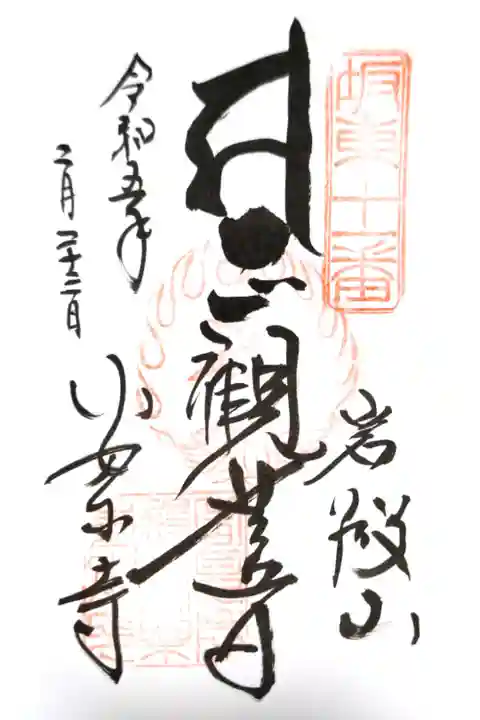 坂東十一番
岩殿山
観世音
令和五年
二月二十二日
安楽寺